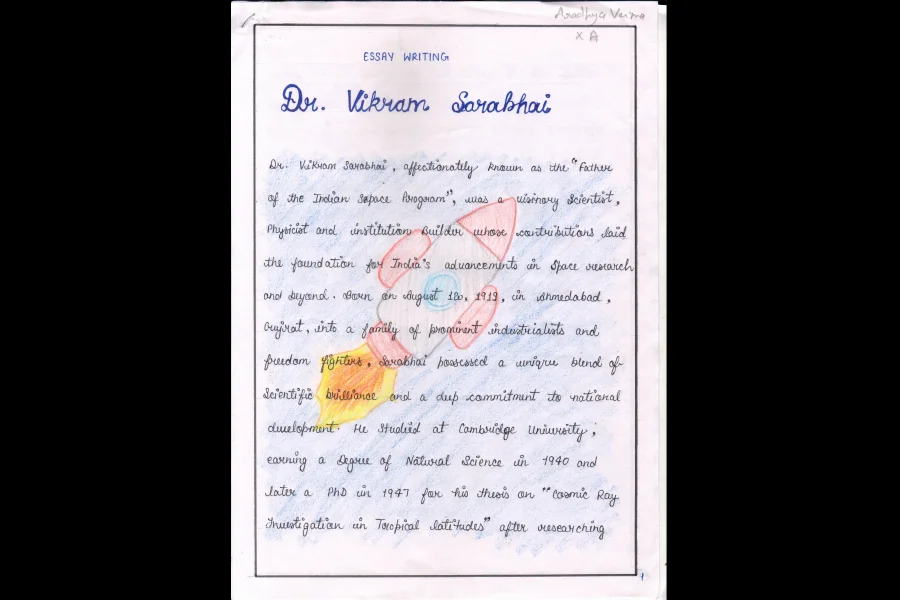 Aradhya Verma
X A
ESSAY WRITING
Dr. Vikram Sarabhai
Dr. Vikram Sarabhai, affectionately known as the "Father
of the Indian Space Program", was a visionary Scientist,
Physicist and institution Builder whose contributions laid
the foundation for India's advancements in Space research
and beyond. Born on August 12, 1919, in Ahmedabad,
Gujrat, into a family of prominent industrialists and
freedom fighters, Sarabhai possessed a unique blend of
Scientific brilliance and a deep commitment to national
development. He Studied at Cambridge University,
earning a Degree of Natural Science in 1940 and
later a PhD in 1947 for his thesis on "Cosmic Ray
Investigation in Tropical latitudes" after researching
1